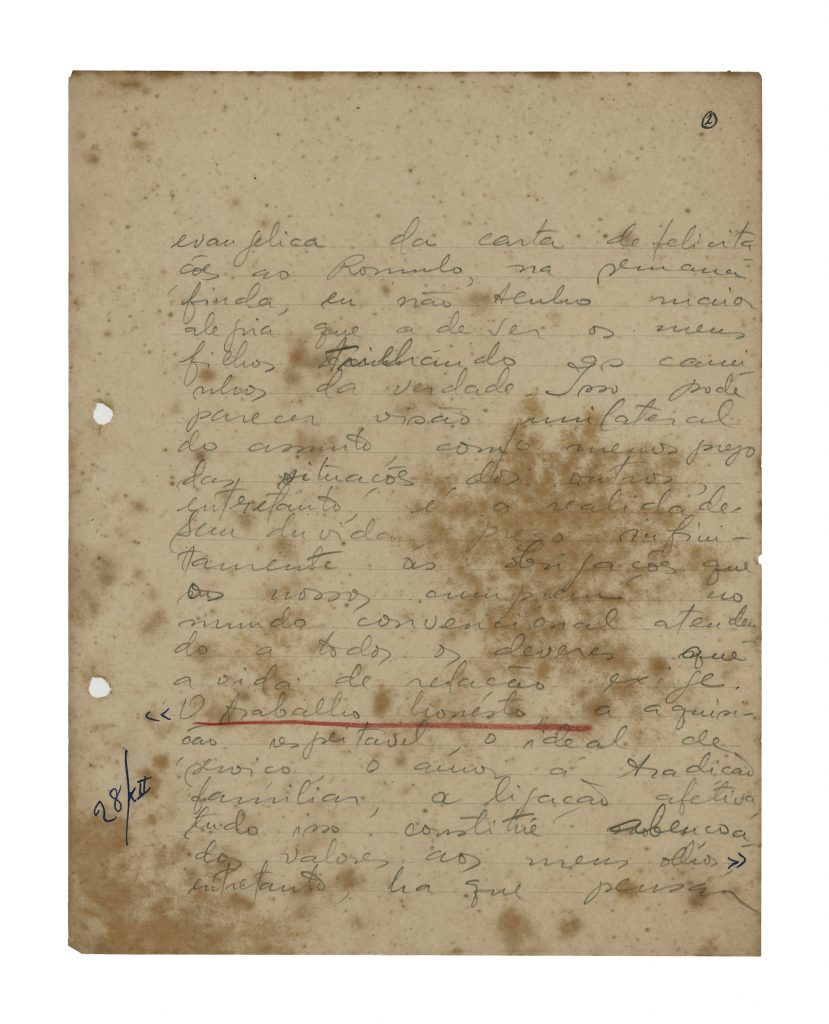 2
evangelica da carta de felicita
ções ao Romulo, na semana
finda, eu não tenho maior
alegria que a de ver os meus
filhos trilhando os cami
nhos da verdade. Isso pode
parecer visão unilateral
do assunto, como menosprezo
das situações dos outros,
entretanto, é a realidade.
Sem duvida, prezo infini-
tamente as obrigações que
os nossos cumprem no
mundo convencional atenden
do a todos os deveres que
a vida de relação exige.
« O trabalho honesto, a aquisi-
ção respeitavel, o ideal de
serviço, o amor á tradição
familiar, a ligação afetiva
tudo isso constitue abençoa
dos valores aos meus olhos »
entretanto, ha que pensar
28/XII